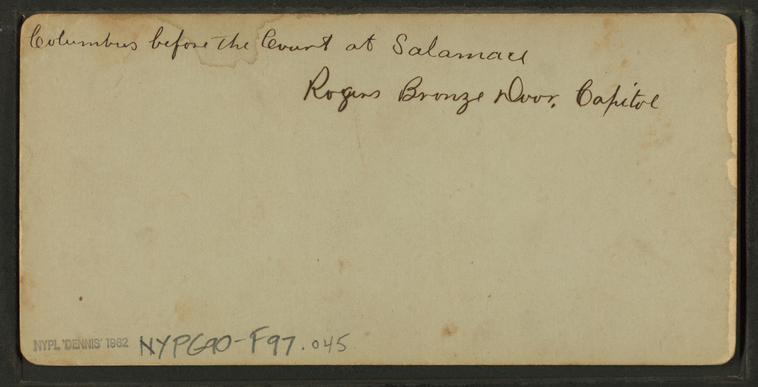 Columbus before the Court at Salamace
Rogers Bronze Door, Capitol
NYPL 'DENNIS' 1982 NYPG90-F97.045